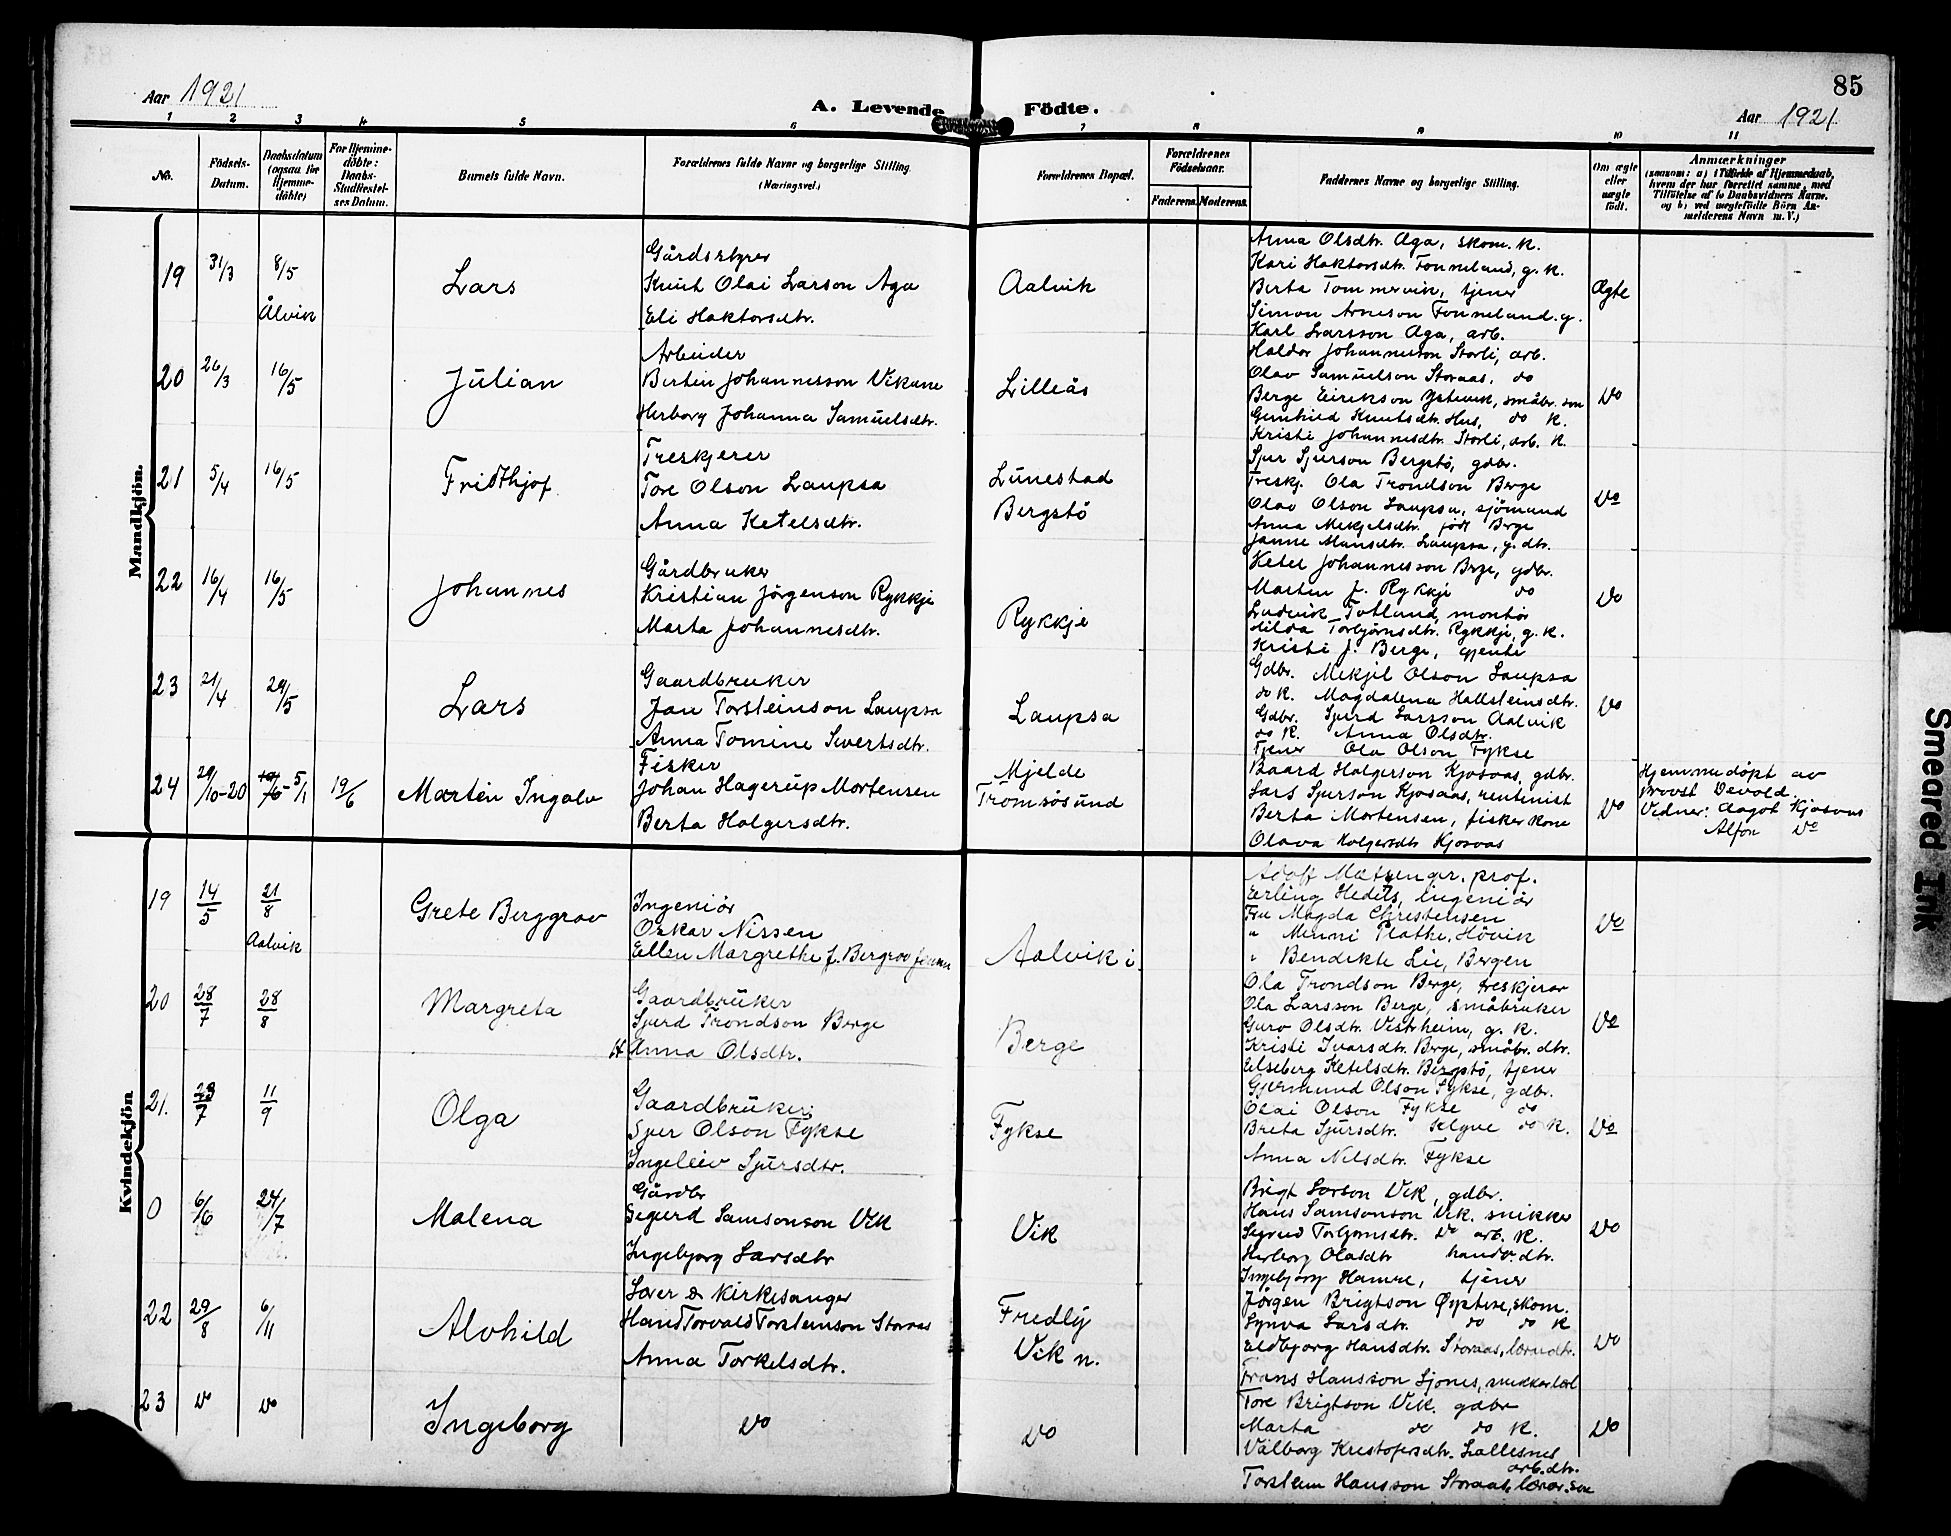 85
Aar 1921
A. Levende Födte.
Aar 1921
1 2 3 4 5 6 7 8 9 10 11
No.
Födsels-Datum.
Daabsdatum (ogsaa for Hjemme-döbte)
For Hjemme-döbte: Daabs-Stadfæstel-ses Datum.
Barnets fulde Navn.
Forældrenes fulde Navne og borgerlige Stilling.
(Næringsvei.)
Forældrenes Bopæl.
Forældrenes Födselsaar.
Faderens. Moderens.
Faddernes Navne og borgerlige Stilling.
Om ægte eller uægte födt.
Anmærkninger
(saasom: a) i Tilfælde af Hjemmedaab,
hvem der har forrettet samme, med
Tilföielse af to Daabsvidners Navne.
og b) ved uægtefödte Börn An-
melderens Navn m. V.)
Mandkjön.
19 31/3 8/5 Ålvik
Lars
Gårdstyrer
Knut Olai Larson Aga
Eli Haktorsdtr.
Aalvik
Anna Olsdtr. Aga, skom. k.
Kari Haktorsdtr. Fonneland, g. k.
Berta Tommervik, tjener
Simon Arneson Fonneland. g.
Karl Larsson Aga, arb.
Ægte
20 26/3 16/5
Julian
Arbeider
Bertin Johannesson Vikane
Herborg Johanna Samuelsdtr.
Lilleås
Haldor Johannesson Storli, arb.
Olav Samuelson Storaas, do
Berge Eirikson Ystevik, småbr. søn
Gunhild Knutsdtr. Hus, do K.
Kristi Johannesdtr. Storli, arb. K.
Do
21 5/4 16/5
Fridthjof
Treskjerer
Tore Olson Laupsa
Anna Ketelsdtr.
Lunestad
Bergstö
Sjur Sjurson Bergstö, gdbr.
Treskj. Ola Trondson Berge
Olav Olson Laupsa, sjömand
Anna Mekjelsdtr. född Berge
Janne Mansdtr. Laupsa, g. dtr.
Do
22 16/4 16/5
Johannes
Gårdbruker
Kristian Jörgenson Rykkje
Marta Johannesdtr.
Rykkje
Ketel Johannesson Berge, gdbr.
Martin J. Rykkje do
Ludvik Totland, montör
Hilda Torbjörnsdtr. Rykkje, g. k.
Kristi J. Berge, gjente
Do
23 21/4 29/5
Lars
Gaardbruker
Jan Torsteinson Laupsa
Anna Tomine Sivertsdtr.
Laupsa
Gdbr. Mekjel Olson Laupsa
do K. Magdalena Hallsteinsdtr.
Gdbr. Sjurd Larsson Aalvik
do K. Anna Olsdtr.
Tjener Ola Olson Fykse
Do
24 29/10-20 5/1 19/6
Martin Ingolv
Fisker
Johan Hagerup Mortensen
Berta Holgersdtr.
Mjelde
Tromsösund
Baard Holgerson Kjosaas, gdbr.
Lars Sjurson Kjosaas, rentenist
Berta Mortensen, fisker kone
Olava Holgersdtr Kjosaas
Do
Hjemmedöpt av
provst Devold.
Vidner: Aagot Kjosaas
Alfon Do
Kvindekjön
19 14/5 21/8 Aalvik
Grete Berggrav
Ingeniör
Oskar Nissen
Ellen Margrethe f. Bergrav
Aalvik i
Adolf Mætzenger. prof.
Eerling Hedels, ingeniör
Fru Magda Christensen
" Menni Plathe, Hövik
" Bendikte Lie, Bergen
Do
20 28/7 28/8
Margreta
Gaardbruker
Sjurd Trondson Berge
Anna Olsdtr.
Berge
Ola Trondson Berge, treskjerar
Ola Larsson Berge, småbruker
Guro Olsdtr. Vestrheim, g. k.
Kristi Ivarsdtr. Berge, småbr. dtr.
Elseberg Ketelsdtr. Bergstö, tjener
Do
21. 7 11/9
Olga
Gaardbruker
Sjur Olson Fykse
Ingeleiv Sjursdtr.
Fykse
Gjermund Olson Fykse, gdbr.
Olai Olson Fykse do
Breta Sjursdtr. Selgve do K.
Anna Nilsdtr. Fykse
Do
0 6/6 24/7
Malena
Gårdbr
Sigurd Samsonson Vik
Ingebjorg Larsdtr
Vik
Brigt Larson Vik, gdbr.
Hans Samsonson Vik. snikker
Sigrid Torbjornsdtr. Do arb. K.
Herborg Olasdtr handv. dtr.
Ingebjorg Hamre, tjener
Do
22 29/8 6/11
Alvhild
Lærer & Kirkesanger
Hans Torvald Torsteinson Storaas
Anna Torkelsdtr.
Fredly
Vik n.
Jörgen Brigtson Öystese, skom.
Synva Larsdtr. do do K
Eldbjorg Hansdtr. Storaas, lærardtr.
Frans Hansson Sjones, snikkerlærl
Do
23 Do Do
Ingeborg
Do
Do
Tore Brigtson Vik. gdbr
Marta do do K.
Valborg Kristofersdtr. Lallesnes
arb. dtr.
Torstein Hansson Storaas, lærar. søn
Do
Smeared Ink